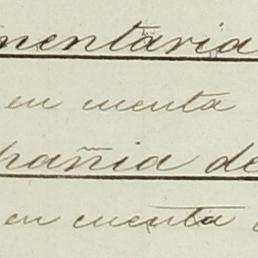 mentaria
en cuenta
pañia de
en cuenta